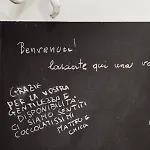 Benvenuti!
Lasciate qui una vo
GRAZIE
PER LA VOSTRA
GENTILEZZA E
DISPONIBILITÀ
CI SIAMO SENTITI
COCCOLATISSIMI
MATTEO E
CHICCA